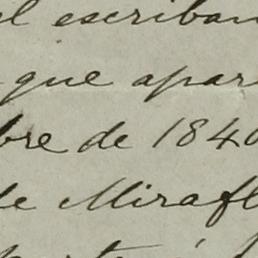 el escriban
que apar
bre de 1840
de Mirafl